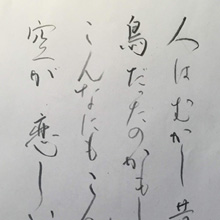 人はむかし
鳥だったのかもし
こんなにもこん
空が恋しい